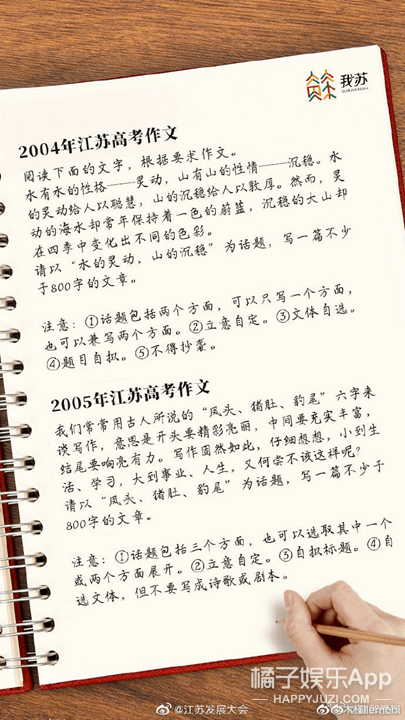 我苏
OURJIANGSU
2004年江苏高考作文
阅读下面的文字，根据要求作文。
水有水的性格——灵动，山有山的性情——沉稳。水
的灵动给人以聪慧，山的沉稳给人以敦厚。然而，灵
动的海水却常年保持着一色的蔚蓝，沉稳的大山却
在四季中变化出不同的色彩。
请以“水的灵动，山的沉稳”为话题，写一篇不少
于800字的文章。
注意：①话题包括两个方面，可以只写一个方面，
也可以兼写两个方面。②立意自定。③文体自选。
④题目自拟。⑤不得抄袭。
2005年江苏高考作文
我们常常用古人所说的“凤头、猪肚、豹尾”六字来
谈写作，意思是开头要精彩亮丽，中间要充实丰富，
结尾要响亮有力。写作固然如此，仔细想想，小到生
活、学习，大到事业、人生，又何尝不该这样呢？
请以“凤头、猪肚、豹尾”为话题，写一篇不少于
800字的文章。
注意：①话题包括三个方面，也可以选取其中一个
或两个方面展开。②立意自定。③自拟标题。④自
选文体，但不要写成诗歌或剧本。
橘子娱乐App
HAPPYJUZI.COM
@江苏发展大会